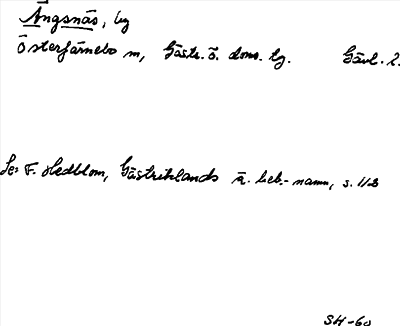 Ängsnäs, by
Österfärnebo sn, Gästr. ö. doms. lg. Gävl. l.
Se: F. Hedblom, Gästriklands ä. beb.-namn, s. 113
SH-60